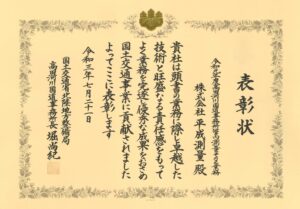 表彰状
株式会社 平成測量 殿
貴社は頭書の業務に際し卓越した
技術と旺盛なる責任感をもって
よく業務を完遂し優秀な成果をおさめ
国土交通事業に貢献されました
よってここに表彰します
令和三年七月二十一日
国土交通省北陸地方整備局
高田河川国道事務所長 堀尚紀